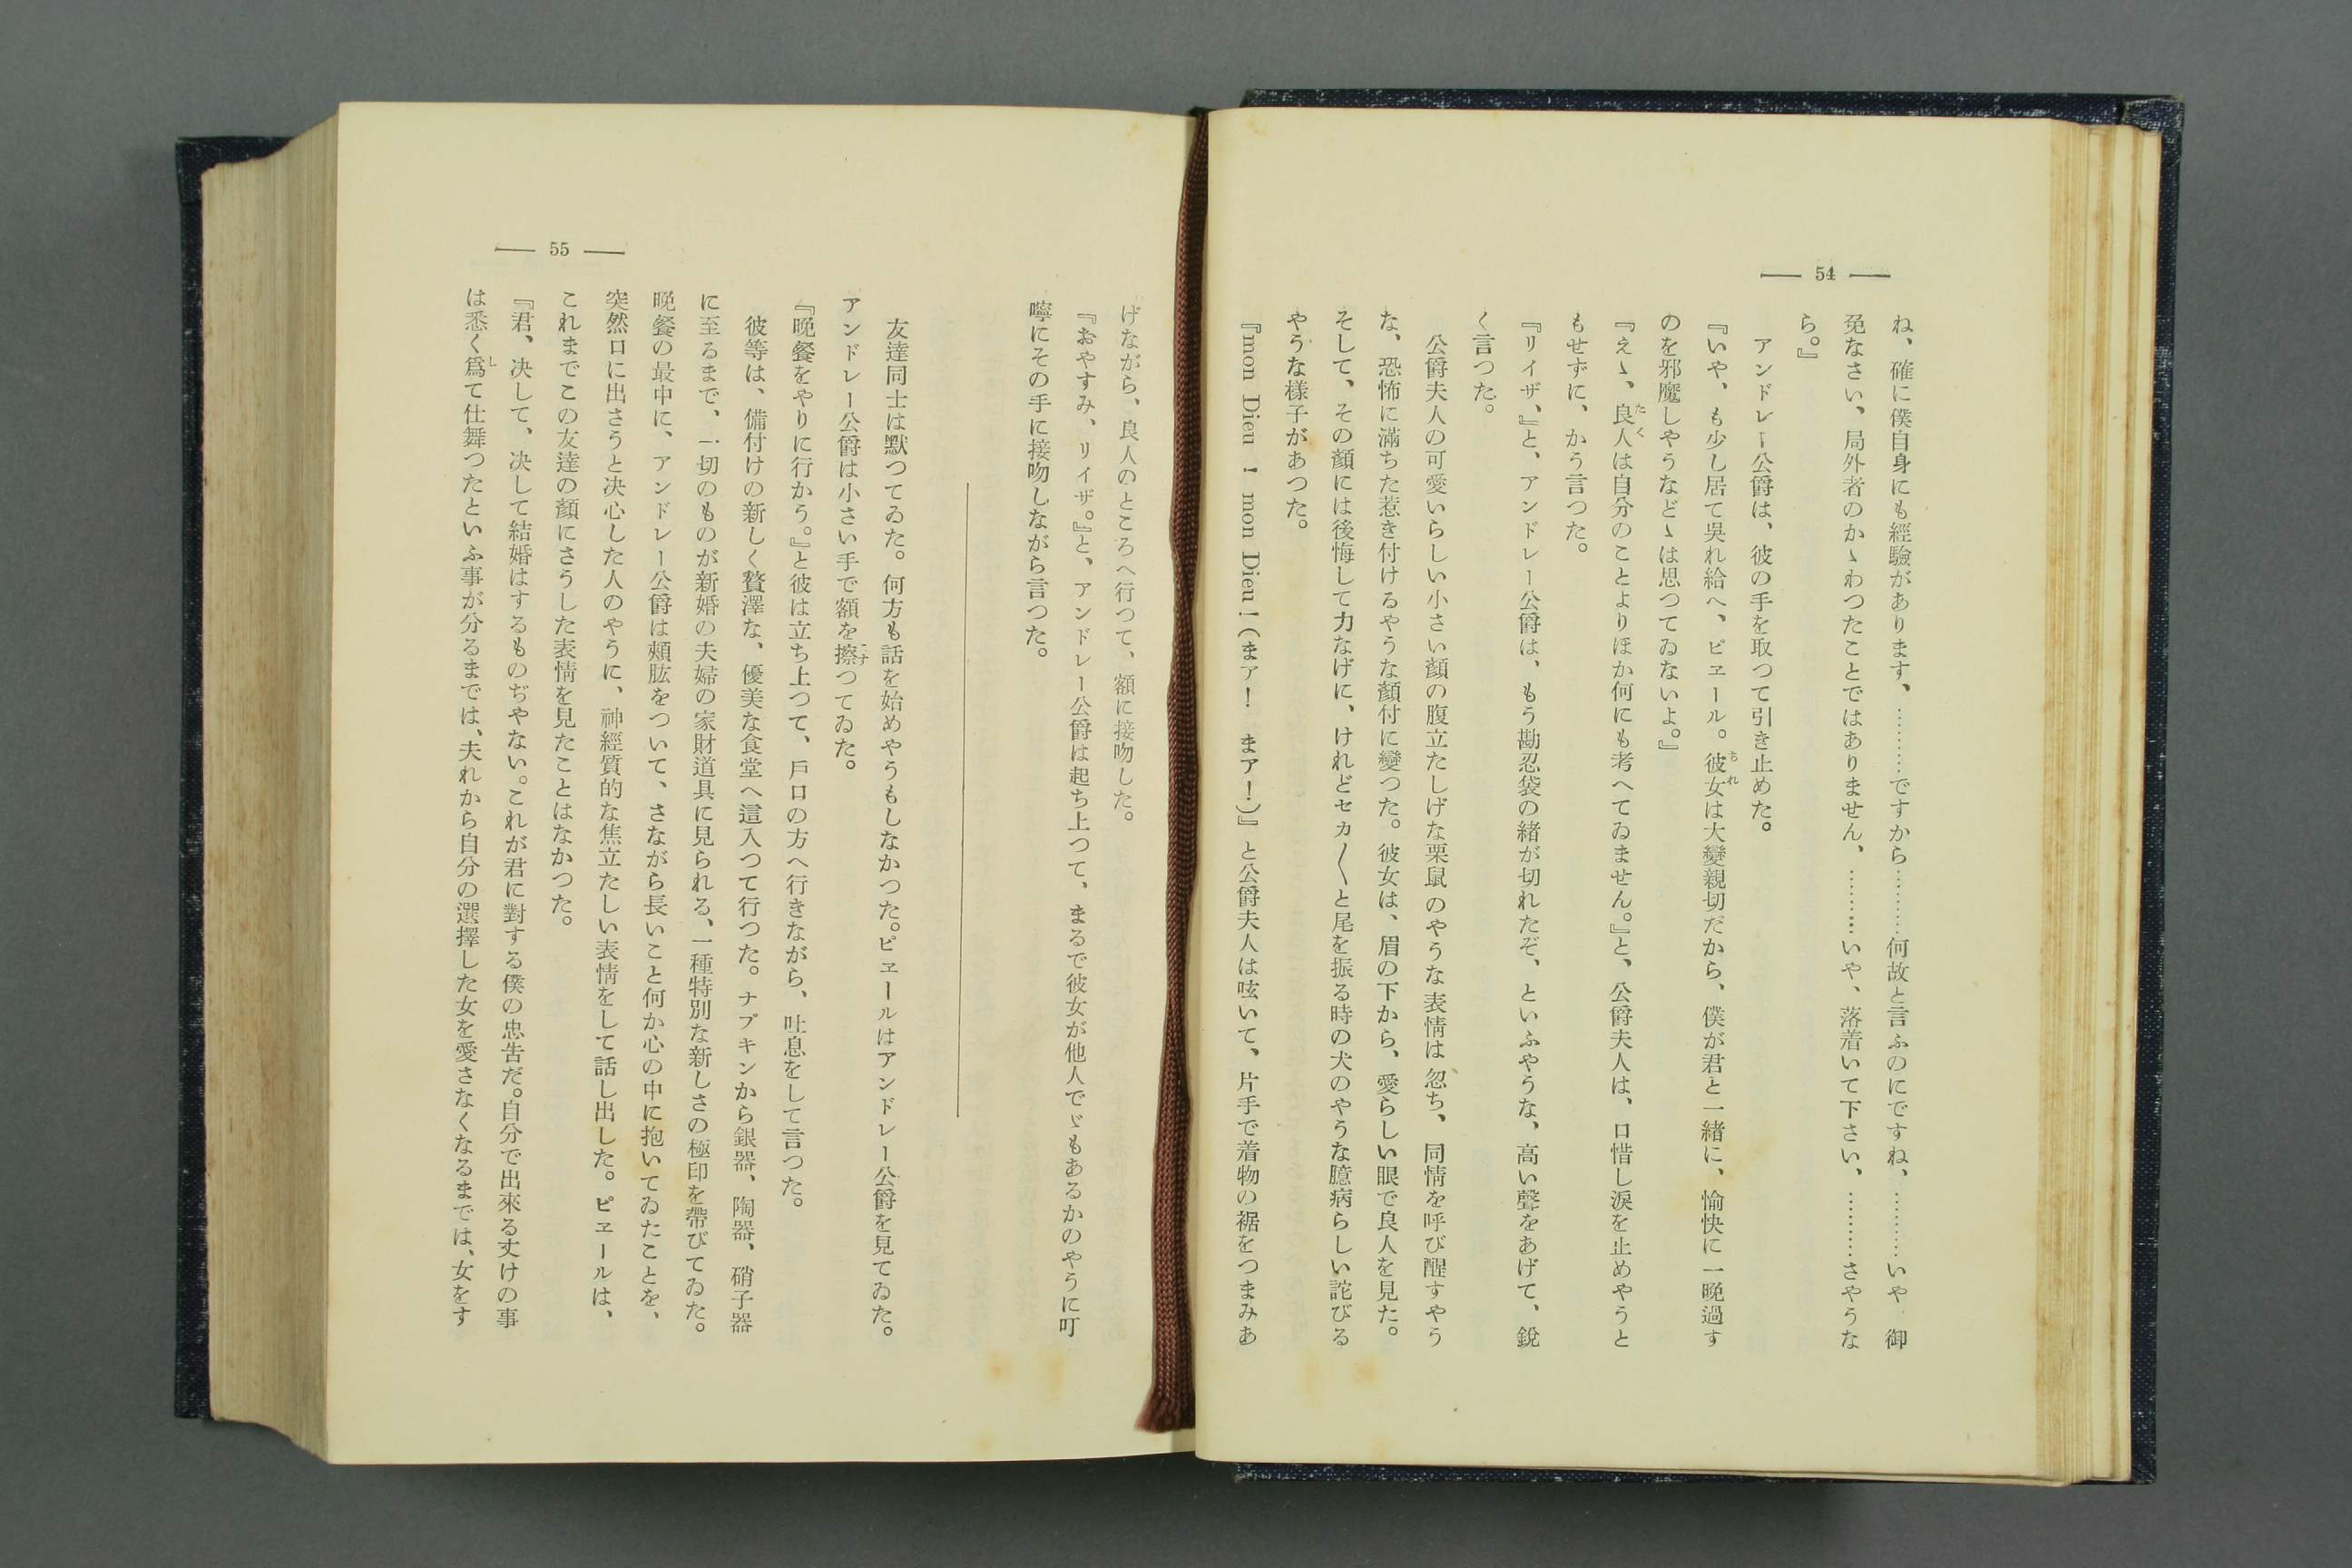 54
ね、確に僕自身にも經驗があります、………ですから………何故と言ふのにですね、………いや、御
免なさい、局外者のかゝわつたことではありません、………いや、落着いて下さい、………さやうな
ら。』
アンドレー公爵は、彼の手を取つて引き止めた。
『いや、も少し居て吳れ給へ、ピエール。彼女は大變親切だから、僕が君と一緒に、愉快に一晩過す
のを邪魔しやうなどゝは思つてゐないよ。』
『えゝ、良人は自分のことよりほか何にも考へてゐません。』と、公爵夫人は、口惜し淚を止めやうと
もせずに、かう言つた。
『リイザ、』と、アンドレー公爵は、もう勘忍袋の緒が切れたぞ、といふやうな、高い聲をあげて、銳
く言つた。
公爵夫人の可愛いらしい小さい顏の腹立たしげな栗鼠のやうな表情は忽ち、同情を呼び醒すやう
な、恐怖に滿ちた惹き付けるやうな顏付に變つた。彼女は、眉の下から、愛らしい眼で良人を見た。
そして、その顏には後悔して力なげに、けれどセカ〱と尾を振る時の犬のやうな臆病らしい詫びる
やうな樣子があつた。
『mon Dieu ! mon Dieu!(まア! まア!)』と公爵夫人は呟いて、片手で着物の裾をつまみあ
55
げながら、良人のところへ行つて、額に接吻した。
『おやすみ、リイザ。』と、アンドレー公爵は起ち上つて、まるで彼女が他人でゞもあるかのやうに叮
嚀にその手に接吻しながら言つた。
友達同士は默つてゐた。何方も話を始めやうもしなかつた。ピエールはアンドレー公爵を見てゐた。
アンドレー公爵は小さい手で額を擦つてゐた。
『晩餐をやりに行かう。』と彼は立ち上つて、戶口の方へ行きながら、吐息をして言つた。
彼等は、備付けの新しく贅澤な、優美な食堂へ這入つて行つた。ナプキンから銀器、陶器、硝子器
に至るまで、一切のものが新婚の夫婦の家財道具に見られる、一種特別な新しさの極印を帶びてゐた。
晩餐の最中に、アンドレー公爵は頰肱をついて、さながら長いこと何か心の中に抱いてゐたことを、
突然口に出さうと決心した人のやうに、神經質的な焦立たしい表情をして話し出した。ピエールは、
これまでこの友達の顏にさうした表情を見たことはなかつた。
『君、決して、決して結婚はするものぢやない。これが君に對する僕の忠吿だ。自分で出來る丈けの事
は悉く爲て仕舞つたといふ事が分るまでは、夫れから自分の選擇した女を愛さなくなるまでは、女をす